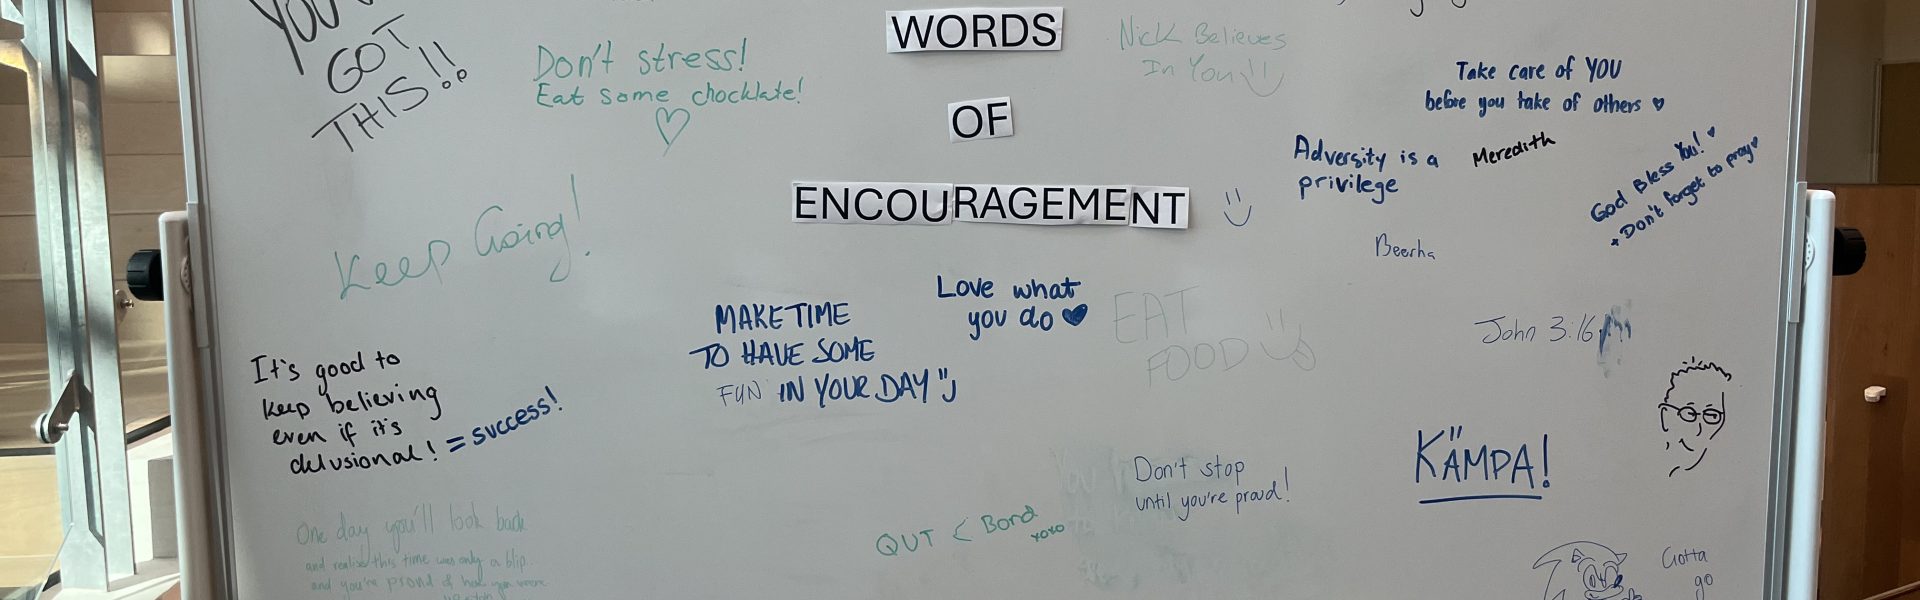 GOT
THIS!!
Don't stress!
Eat some chocklate!
WORDS
OF
ENCOURAGEMENT
Nick Believes
In You
Take care of YOU
before you take of others
Adversity is a
privilege
Meredith
God Bless You!
Don't forget to pray
Beerha
Keep Going!
MAKE TIME
TO HAVE SOME
FUN IN YOUR DAY
Love what
you do
EAT
FOOD
John 3:16
It's good to
keep believing
even if it's
delusional! = success!
KÄMPA!
Don't stop
until you're proud!
QUT < Bond
xoxo
One day you'll look back
and realise this time was only a blip.
and you're proud of how you were
Gotta
go